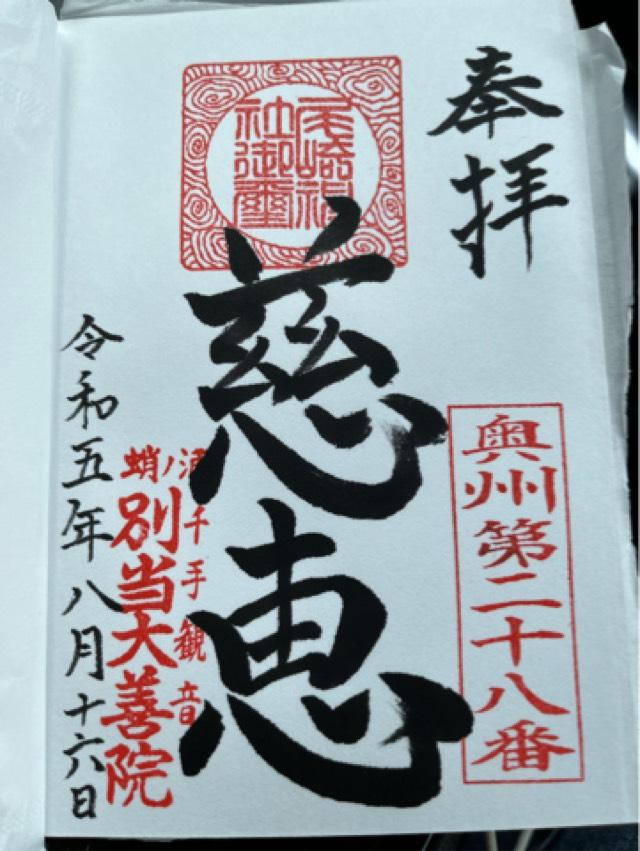 奉拝
奥州第二十八番
尾崎神
社御璽
慈恵
蛸ノ浦千手観音
別当大善院
令和五年八月十六日